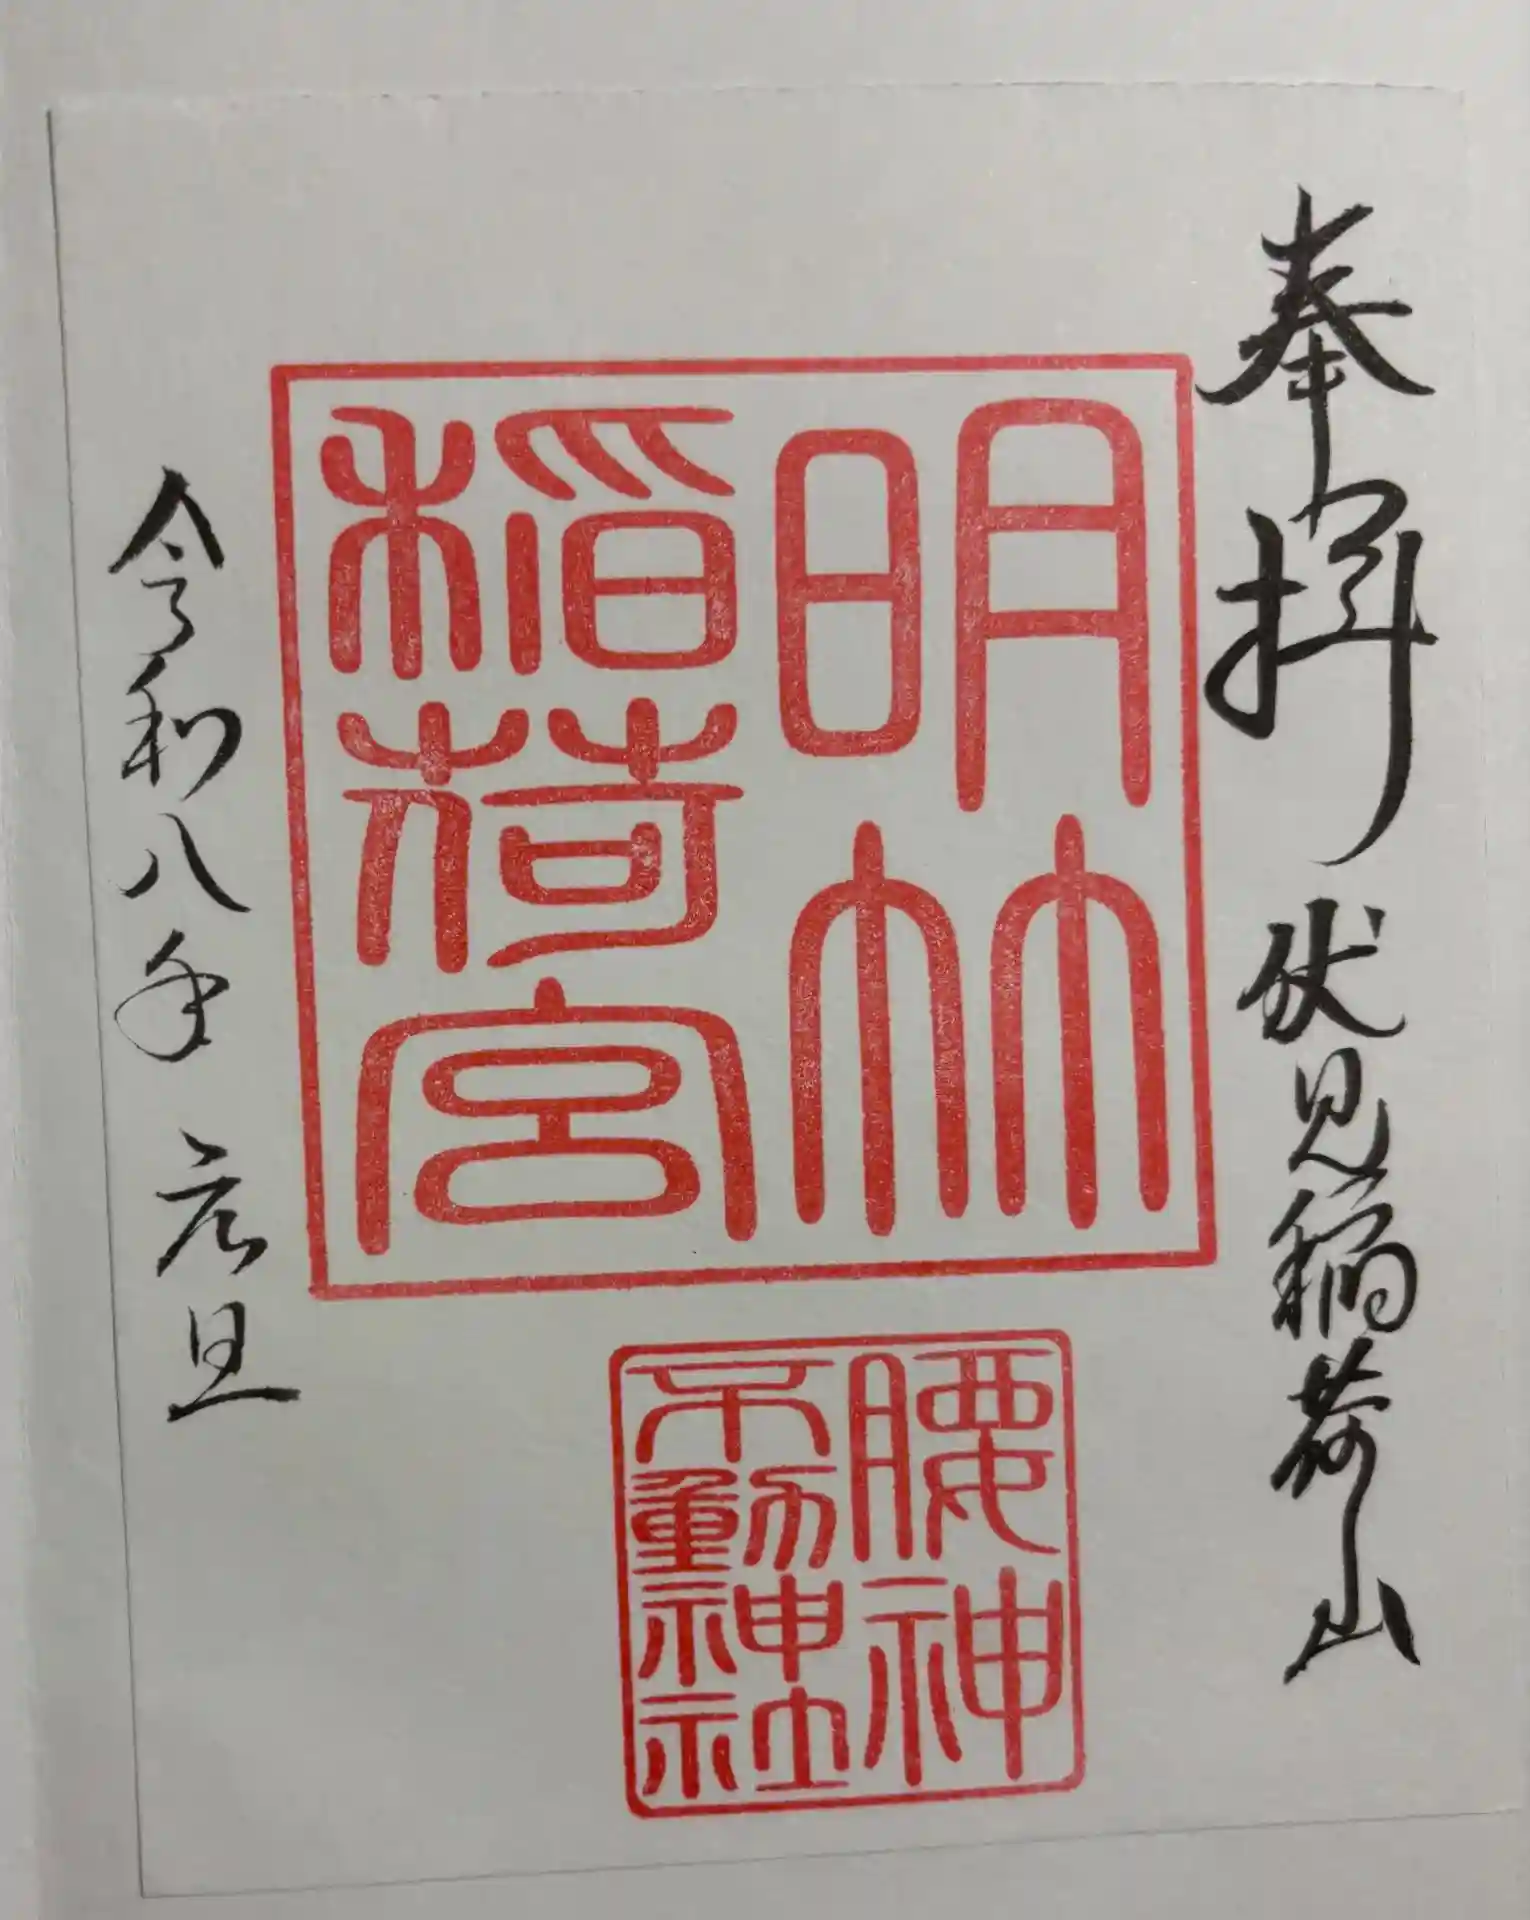 奉拝 伏見稲荷山
明竹
稲荷宮
腰神
不動神社
令和八年 元旦